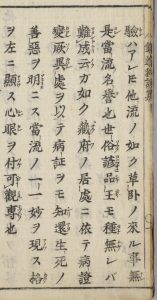 驗ハアレ𪜈他流ノ如ク草卧ノ來ル事無
是當流名譽也世俗諺品玉モ種無レバ
難成云ガ如ク藏府ノ居處ニ依テ病證
變厥異處ヲ以テ病証ヲモ知還生死ノ
善惡ヲ明ニス當流ノ一一妙ヲ現ス
ヲ左ニ顯ス心眼ヲ付可觀專也